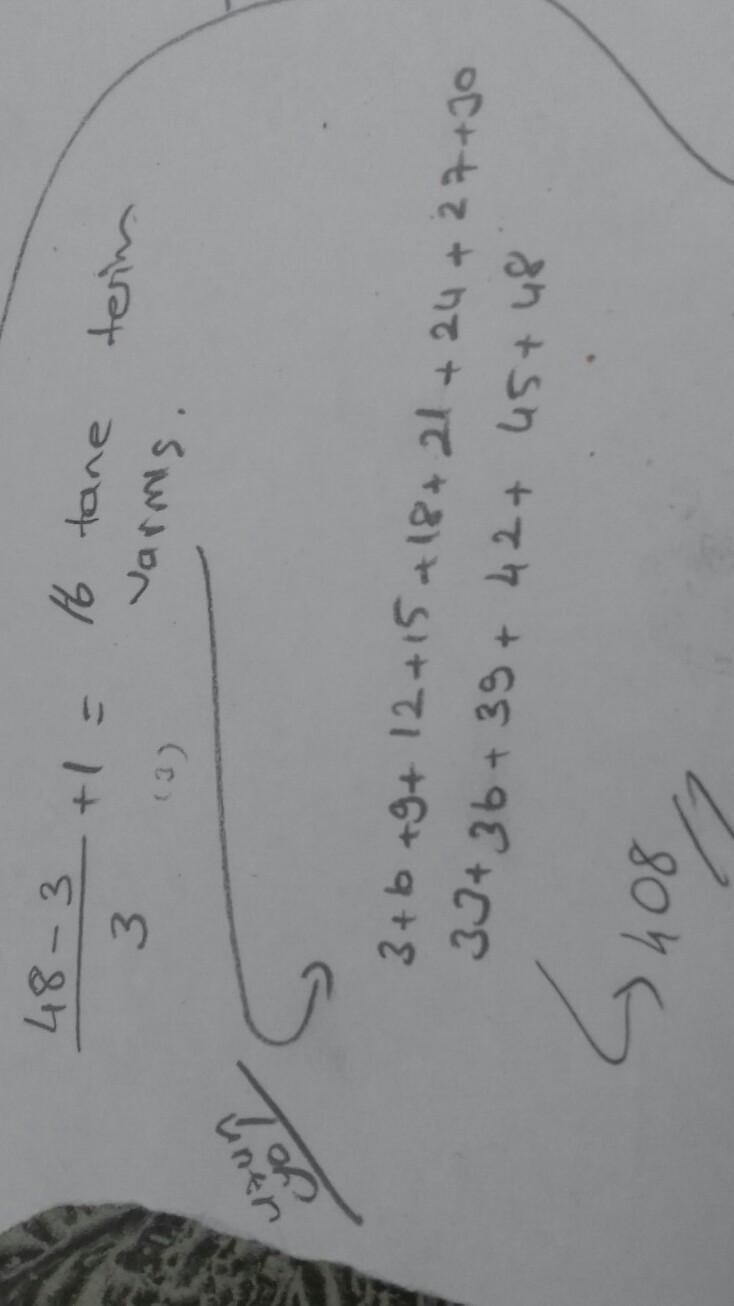 48-3
3
+1 = 16 tane terim
(3)
varmış.
uzun
yol
3+6+9+12+15+18+21+24+27+30
33+36+39+42+45+48
408